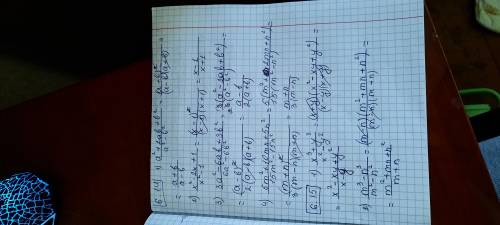 6.14 1) a²+6ab+b² / a²-b² = (a+b)² / (a-b)(a+b) =
= a+b / a-b
2) x²-2x+1 / x²-1 = (x-1)² / (x-1)(x+1) = x-1 / x+1
3) 3a²-6ab+3b² / 6a²-6b² = 3(a²-2ab+b²) / 6(a²-b²) =
= (a-b)² / 2(a-b)(a+b) = a-b / 2(a+b)
= (m+n)² / 3(m-n)(m+n) = m+n / 3(m-n)
6.15 1) x³+y³ / x²-y² = (x+y)(x²-xy+y²) / (x-y)(x+y) =
= x²-xy+y² / x-y
2) m³-n³ / m²-n² = (m-n)(m²+mn+n²) / (m-n)(m+n) =
= m²+mn+n² / m+n